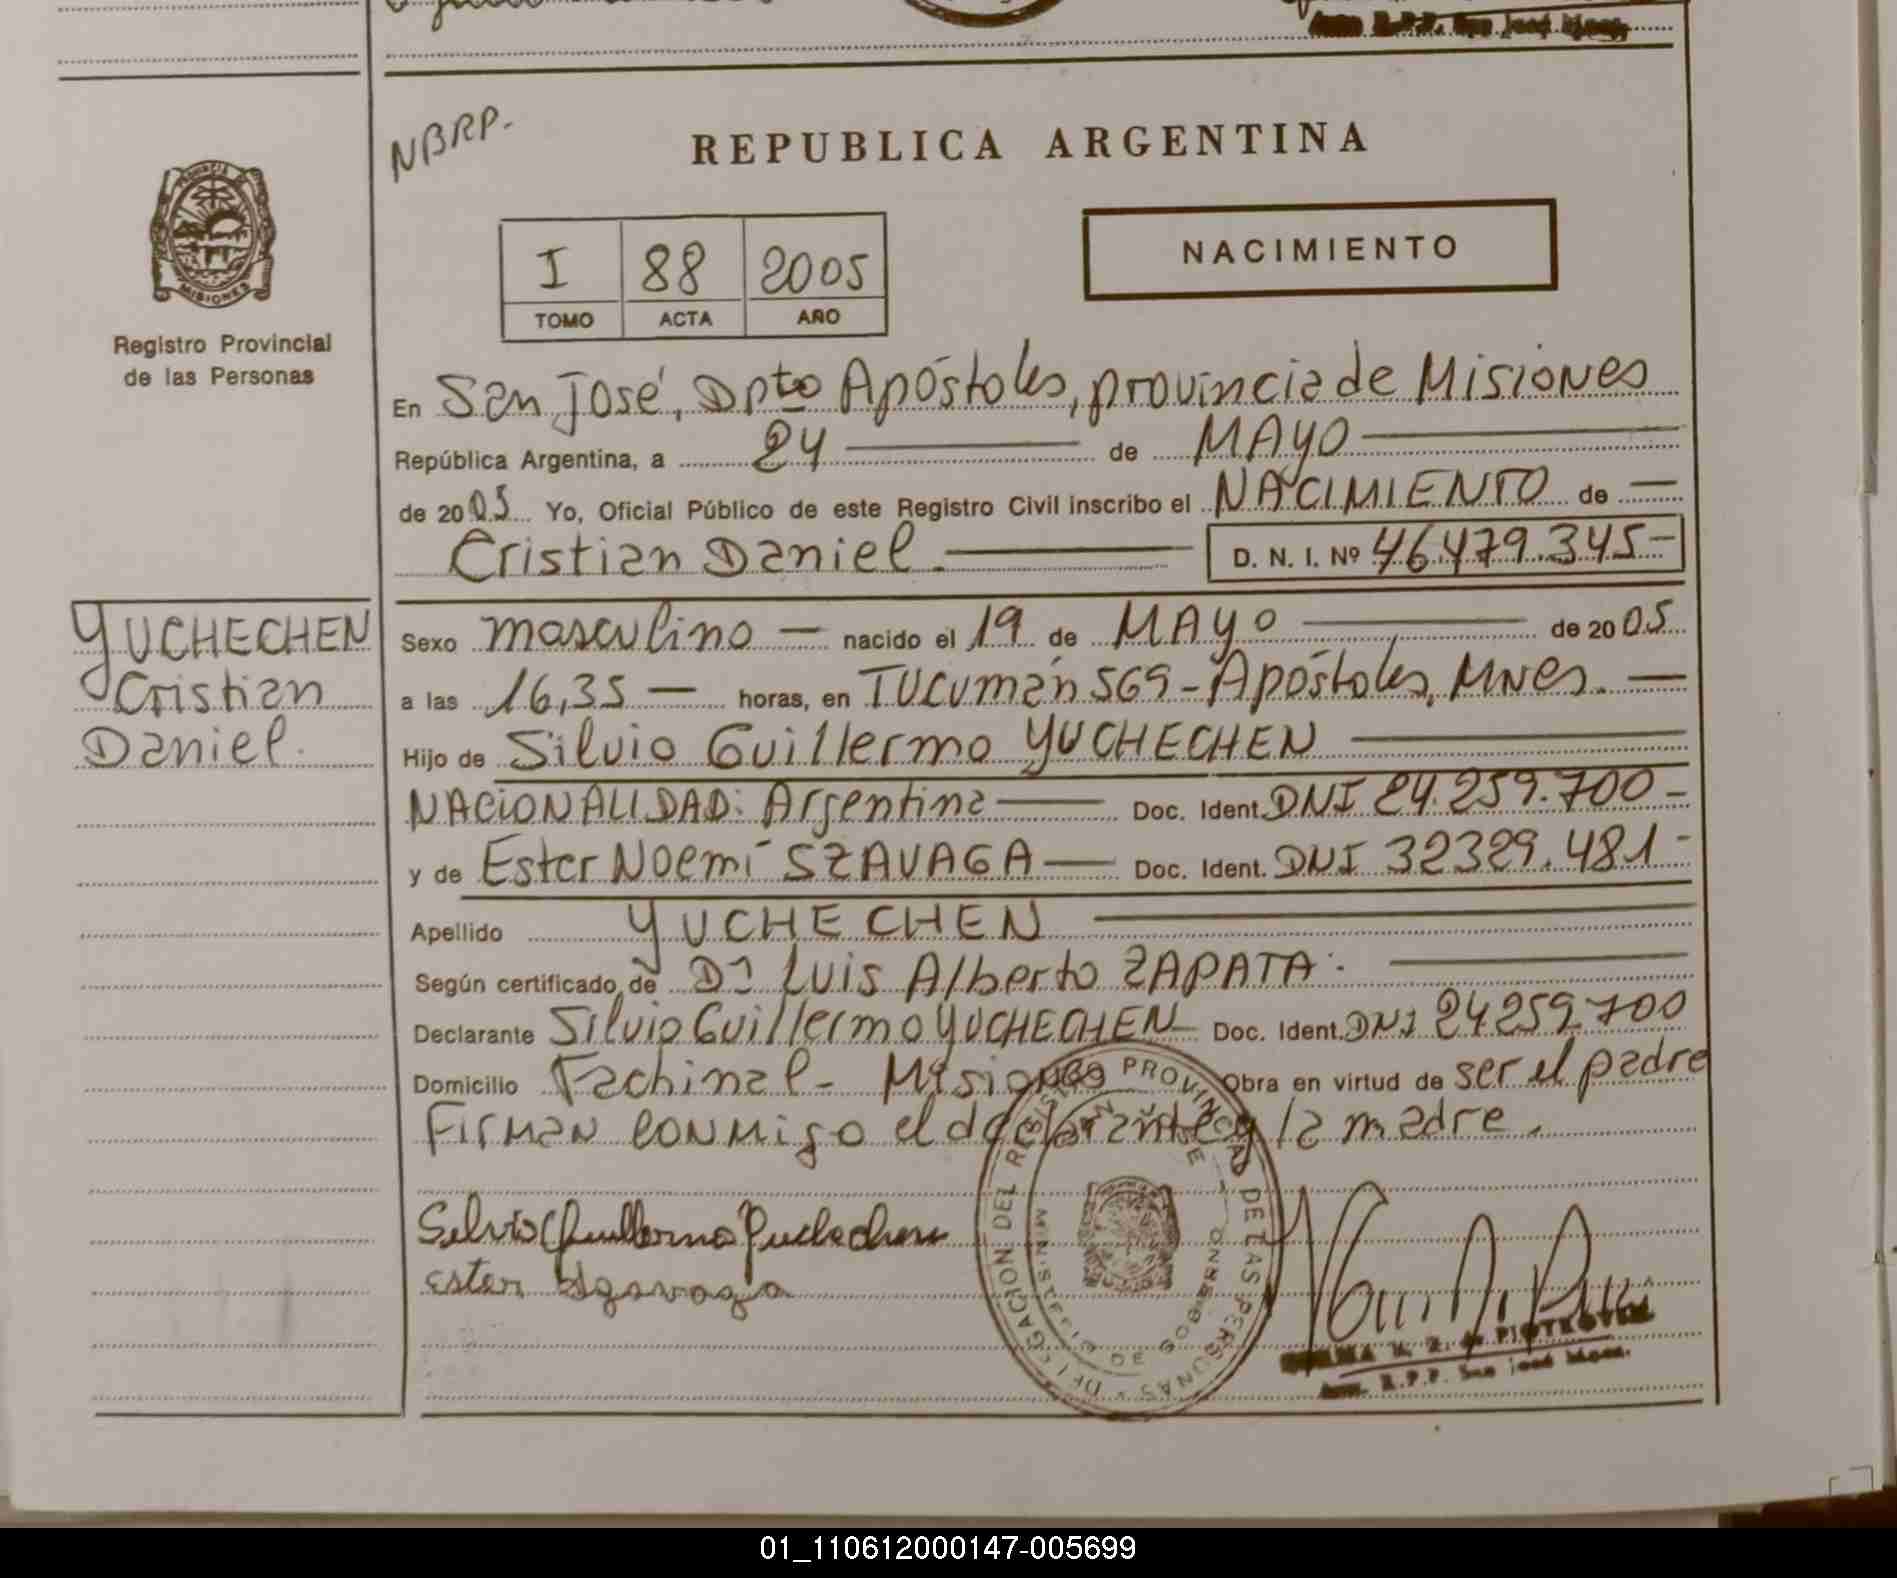 NBRP.
REPUBLICA ARGENTINA
PROVINCIA DE
MISIONES
Registro Provincial
de las Personas
I 88 2005
TOMO ACTA AÑO
NACIMIENTO
En San José, Dpto Apóstoles, provincia de Misiones
República Argentina, a 24 de MAYO
de 2005 Yo, Oficial Público de este Registro Civil inscribo el NACIMIENTO de
Cristian Daniel. D. N. I. Nº 46.479.345-
YUCHECHEN
Cristian
Daniel.
Sexo masculino nacido el 19 de MAYO de 2005
a las 16,35 horas, en Tucumán 569 - Apóstoles, Mnes.
Hijo de Silvio Guillermo YUCHECHEN
NACIONALIDAD: Argentina Doc. Ident. DNI 24.259.700-
y de Ester Noemí SZAVAGA Doc. Ident. DNI 32329.481-
Apellido YUCHECHEN
Según certificado de Dr Luis Alberto ZAPATA.
Declarante Silvio Guillermo YUCHECHEN Doc. Ident. DNI 24259700
Domicilio Fachinal - Misiones Obra en virtud de ser el padre
Firman conmigo el declarante y la madre.
Silvio Guillermo Yuchechen
Ester Szavaga
DELEGACION DEL REGISTRO PROVINCIAL DE LAS PERSONAS
MINISTERIO DE GOBIERNO
SAN JOSE
de PIOTROSKI
R.P.P. San José Mnes.
01_110612000147-005699